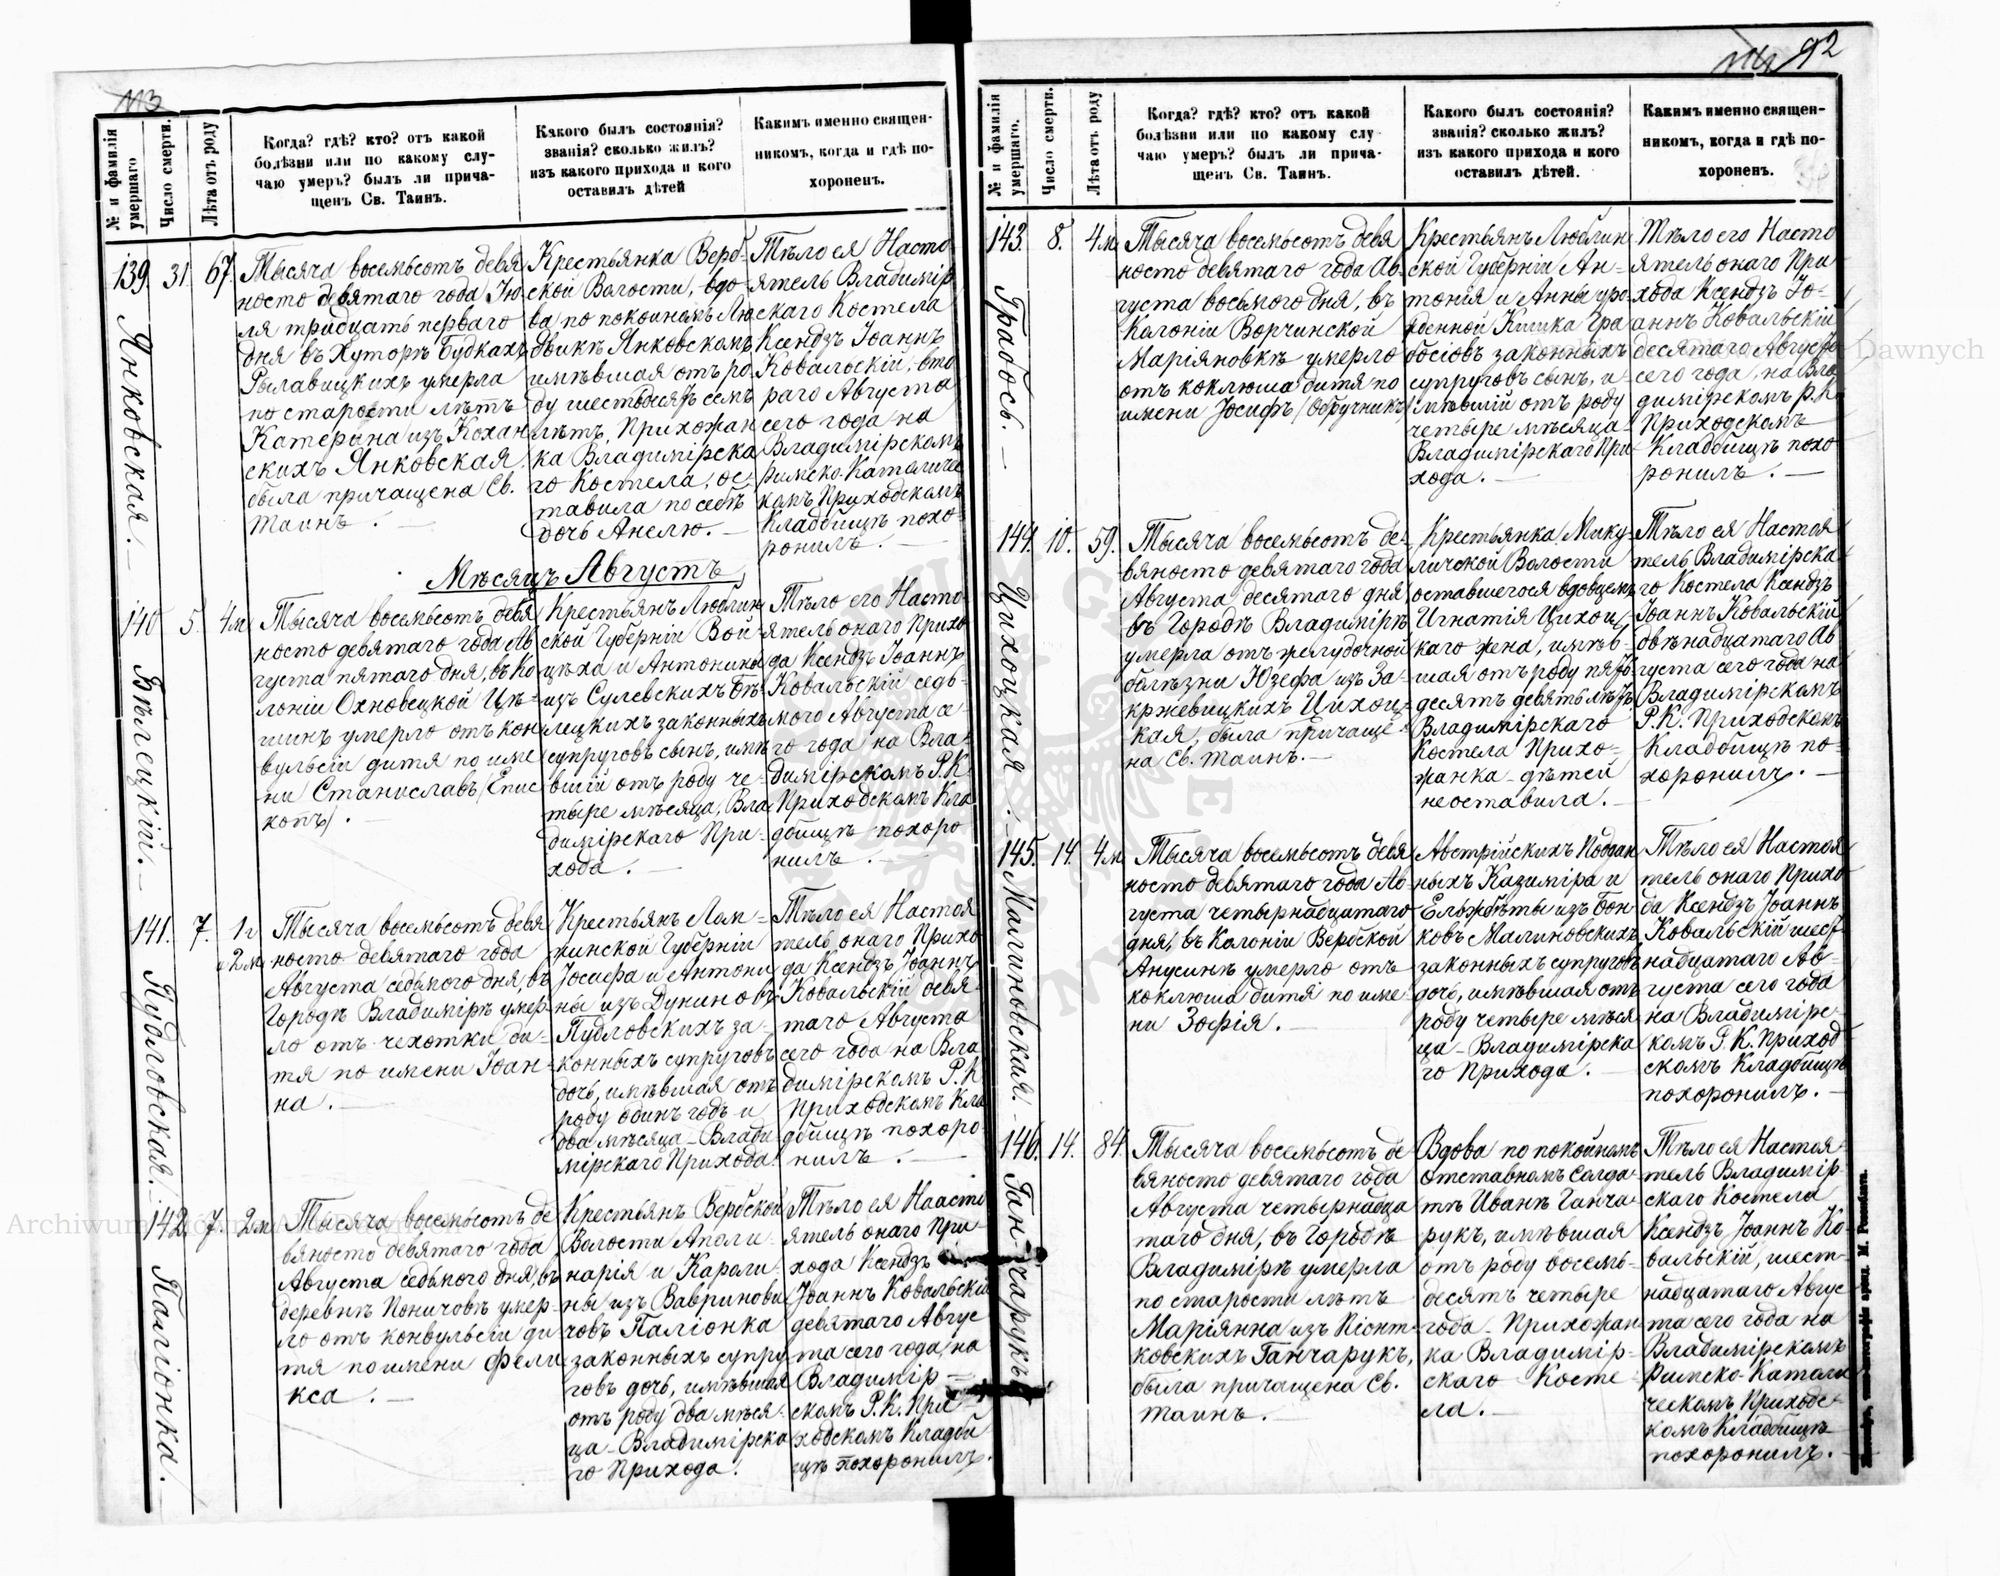 113
№ и фамилія умершаго
Число смерти.
Лѣта отъ роду
Когда? гдѣ? кто? отъ какой
болѣзни или по какому слу-
чаю умеръ? былъ ли прича-
щенъ Св. Таинъ.
Какого былъ состоянія?
званія? сколько жилъ?
изъ какого прихода и кого
оставилъ дѣтей
Какимъ именно священ-
никомъ, когда и гдѣ по-
хороненъ.
139.
Янковская.
31
67.
Тысяча восемьсотъ девя
носто девятаго года Ію
ля тридцать перваго
дня въ Хуторѣ Будкахъ
Рылавицкихъ умерла
по старости лѣтъ
Катерина изъ Кохан
скихъ Янковская,
была причащена Св.
Таинъ.
Крестьянка Верб-
ской Волости, вдо
ва по покойномъ Лю
двикѣ Янковскомъ
имѣвшая отъ ро
ду шестьдесятъ семь
лѣтъ, Прихожан
ка Владимірска
го Костела, ос-
тавила по себѣ
дочь Анелю.
Тѣло ея Насто
ятель Владимір
скаго Костела
Ксендзъ Іоаннъ
Ковальскій, вто
раго Августа
сего года на
Владимірскомъ
Римско-Католиче
комъ Приходскомъ
Кладбищѣ похо-
ронилъ.
Мѣсяцъ Августъ
140
Бѣлецкій.
5.
4м
Тысяча восемьсотъ девя
носто девятаго года Ав
густа пятаго дня, въ Ко
лоніи Охновецкой Цѣ-
шинъ умерло отъ кон
вульсіи дитя по име
ни Станиславъ (Епис
копъ).
Крестьянъ Люблин
ской Губерніи Вой-
цѣха и Антонины
изъ Сулевскихъ Бѣ-
лецкихъ законныхъ
супруговъ сынъ, имѣ
вшій отъ роду че-
тыре мѣсяца, Вла
димірскаго При-
хода.
Тѣло его Насто-
ятель онаго Прихо
да Ксендзъ Іоаннъ
Ковальскій седь-
мого Августа се
го года на Вла-
димірскомъ Р.К.
Приходскомъ Кла
дбищѣ похоро
нилъ.
141.
Пудловская.
7.
1г
и 2м
Тысяча восемьсотъ девя
носто девятаго года
Августа седьмого дня, въ
Городѣ Владимірѣ умер
ло отъ чехотки ди-
тя по имени Іоан-
на.
Крестьянъ Лом-
жинской Губерніи
Іосифа и Антони
ны изъ Дуниновъ
Пудловскихъ за-
конныхъ супруговъ
дочь, имѣвшая отъ
роду одинъ годъ и
два мѣсяца - Влади
мірскаго Прихода.
Тѣло ея Настоя
тель онаго Прихо
да Ксендзъ Іоаннъ
Ковальскій девя-
таго Августа
сего года на Вла
димірскомъ Р.К
Приходскомъ Кла
дбищѣ похоро-
нилъ.
142.
Паліонка.
7.
2м
Тысяча восемьсотъ де
вяносто девятаго года
Августа седьмого дня, въ
деревнѣ Поничовѣ умер-
ло отъ конвульсіи ди
тя по имени Фели
кса.
Крестьянъ Вербской
Волости Аполи
нарія и Кароли-
ны изъ Вавринови
човъ Паліонка
законныхъ супру
говъ дочь, имѣвшая
отъ роду два мѣся-
ца - Владимірска
го Прихода.
Тѣло ея Наасто
ятель онаго При-
хода Ксендзъ
Іоаннъ Ковальскій
девятаго Авгус
та сего года, на
Владимір-
скомъ Р.К. При-
ходскомъ Кладби
щѣ похоронилъ.
92
№ и фамилія умершаго.
Число смерти.
Лѣта отъ роду
Когда? гдѣ? кто? отъ какой
болѣзни или по какому слу-
чаю умеръ? былъ ли прича-
щенъ Св. Таинъ.
Какого былъ состоянія?
званія? сколько жилъ?
изъ какого прихода и кого
оставилъ дѣтей.
Какимъ именно священ-
никомъ, когда и гдѣ по-
хороненъ.
143.
Грабось.
8.
4м
Тысяча восемьсотъ девя
носто девятаго года Ав
густа восьмого дня, въ
Колоніи Ворчинской
Маріяновкѣ умерло
отъ коклюша дитя по
имени Іосифъ (Обручникъ)
Крестьянъ Люблин
ской Губерніи Ан-
тонія и Анны уро
жденной Кицика Гра
босіовъ законныхъ
супруговъ сынъ, и-
мѣвшій отъ роду
четыре мѣсяца-
Владимірскаго При
хода.
Тѣло его Насто
ятель онаго При
хода Ксендзъ Іо-
аннъ Ковальскій
десятаго Августа
сего года, на Вла
димірскомъ Р.К.
Приходскомъ
Кладбищѣ похо
ронилъ.
144.
Цихоцкая.
10.
59.
Тысяча восемьсотъ де-
вяносто девятаго года
Августа десятаго дня
въ Городѣ Владимірѣ
умерла отъ желудочной
болѣзни Юзефа изъ За-
кржевицкихъ Цихоц-
кая, была причаще-
на Св. Таинъ.
Крестьянка Мику-
личской Волости
оставшегося вдовцемъ
Игнатія Цихоц-
каго жена, имѣв-
шая отъ роду пять
десятъ девять лѣтъ
Владимірскаго
Костела Прихо-
жанка - дѣтей
не оставила.
Тѣло ея Настоя
тель Владимірска-
го Костела Ксендзъ
Іоаннъ Ковальскій
двѣнадцатаго Ав
густа сего года на
Владимірскомъ
Р.К. Приходскомъ
Кладбищѣ по-
хоронилъ.
145.
Малиновская.
14.
4м
Тысяча восемьсотъ девя
носто девятаго года Ав
густа четырнадцатаго
дня, въ Колоніи Вербской
Анусинѣ умерло отъ
коклюша дитя по име-
ни Зофія.
Австрійскихъ Поддан
ныхъ Казиміра и
Ельжбѣты изъ Бон-
ковъ Малиновскихъ
законныхъ супруговъ
дочь, имѣвшая отъ
роду четыре мѣся
ца - Владимірска
го Прихода.
Тѣло ея Настоя
тель онаго Прихо
да Ксендзъ Іоаннъ
Ковальскій шест
надцатаго Ав-
густа сего года
на Владимірс-
комъ Р.К. Приход
скомъ Кладбищѣ
похоронилъ.
146.
Ганчарукъ
14.
84.
Тысяча восемьсотъ де-
вяносто девятаго года
Августа четырнадца
таго дня, въ Городѣ
Владимірѣ умерла
по старости лѣтъ
Маріянна изъ Піонт-
ковскихъ Ганчарукъ,
была причащена Св.
Таинъ.
Вдова по покойномъ
Отставномъ Солда-
тѣ Иванѣ Ганча-
рукъ, имѣвшая
отъ роду восемь-
десятъ четыре
года - Прихожан
ка Владимір-
скаго Косте-
ла.
Тѣло ея Настоя-
тель Владимір
скаго Костела
Ксендзъ Іоаннъ Ко-
вальскій, шест-
надцатаго Авгус
та сего года на
Владимірскомъ
Римско-Католи
ческомъ Приходс-
комъ Кладбищѣ
похоронилъ.